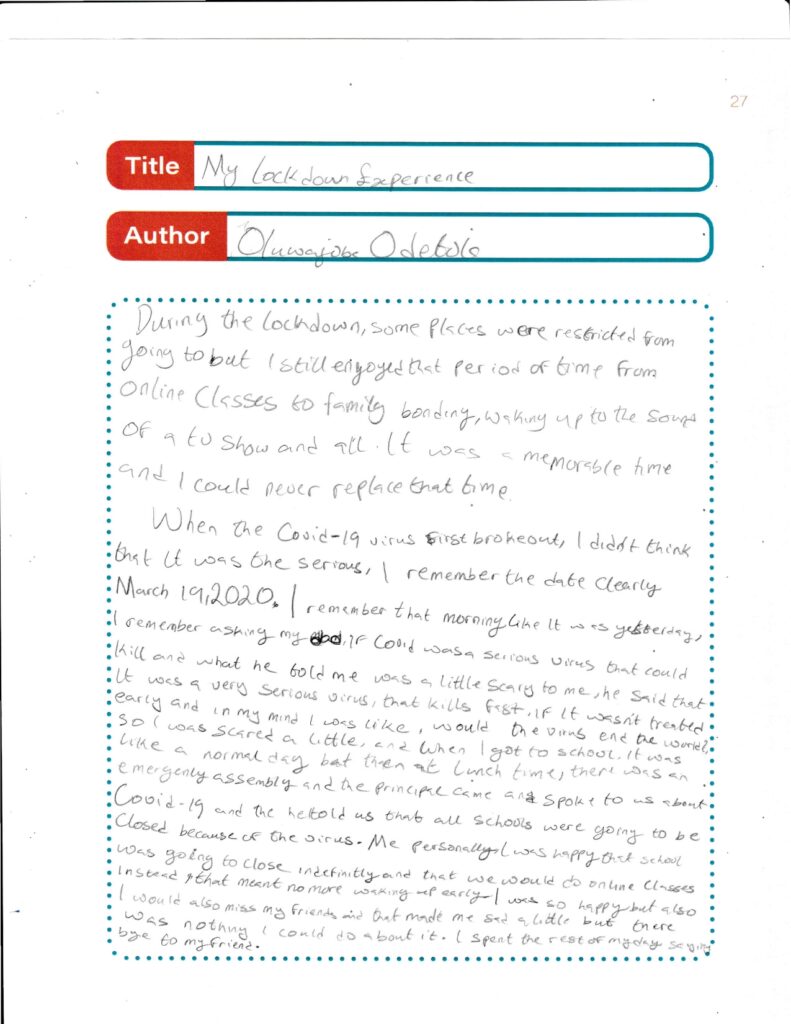 27
Title My Lockdown Experience
Author Oluwajoba Odetola
During the lockdown, some places were restricted from
going to but I still enjoyed that period of time from
online classes to family bonding, waking up to the sound
of a tv show and all. It was a memorable time
and I could never replace that time.
When the Covid-19 virus first brokeout, I didn't think
that it was the serious, I remember the date clearly
March 19,2020. I remember that morning like it was yesterday,
I remember asking my dad, if Covid was a serious virus that could
kill and what he told me was a little scary to me, he said that
It was a very serious virus, that kills fast, if it wasn't treated
early and in my mind I was like, would the virus end the world?
So I was scared a little, and when I got to school, it was
like a normal day but then at lunch time, there was an
emergenly assembly and the principal came and spoke to us about
Covid-19 and the he told us that all schools were going to be
closed because of the virus. Me personally I was happy that school
was going to close indefinitly and that we would do online classes
instead, that meant no more waking up early. I was so happy but also
I would also miss my friends and that made me sad a little but there
was nothing I could do about it. I spent the rest of my day saying
bye to my friend.